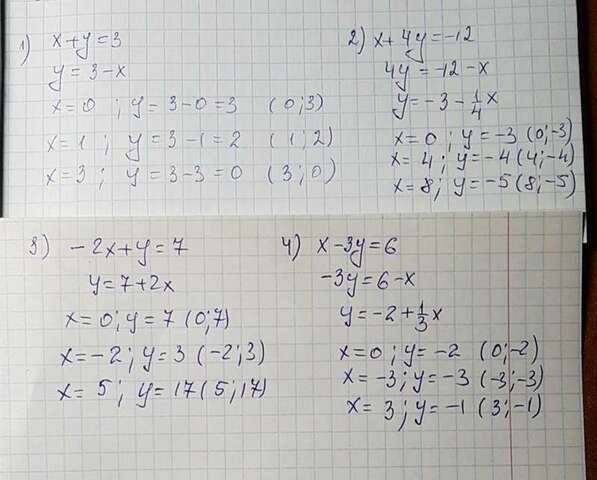 1) x+y=3
y=3-x
x=0 ; y=3-0=3 (0;3)
x=1 ; y=3-1=2 (1;2)
x=3 ; y=3-3=0 (3;0)
2) x+4y=-12
4y=-12-x
y=-3-1/4x
x=0; y=-3 (0;-3)
x=4; y=-4 (4;-4)
x=8; y=-5 (8;-5)
3) -2x+y=7
y=7+2x
x=0; y=7 (0;7)
x=-2; y=3 (-2;3)
x=5; y=17 (5;17)
4) x-3y=6
-3y=6-x
y=-2+1/3x
x=0; y=-2 (0;-2)
x=-3; y=-3 (-3;-3)
x=3; y=-1 (3;-1)